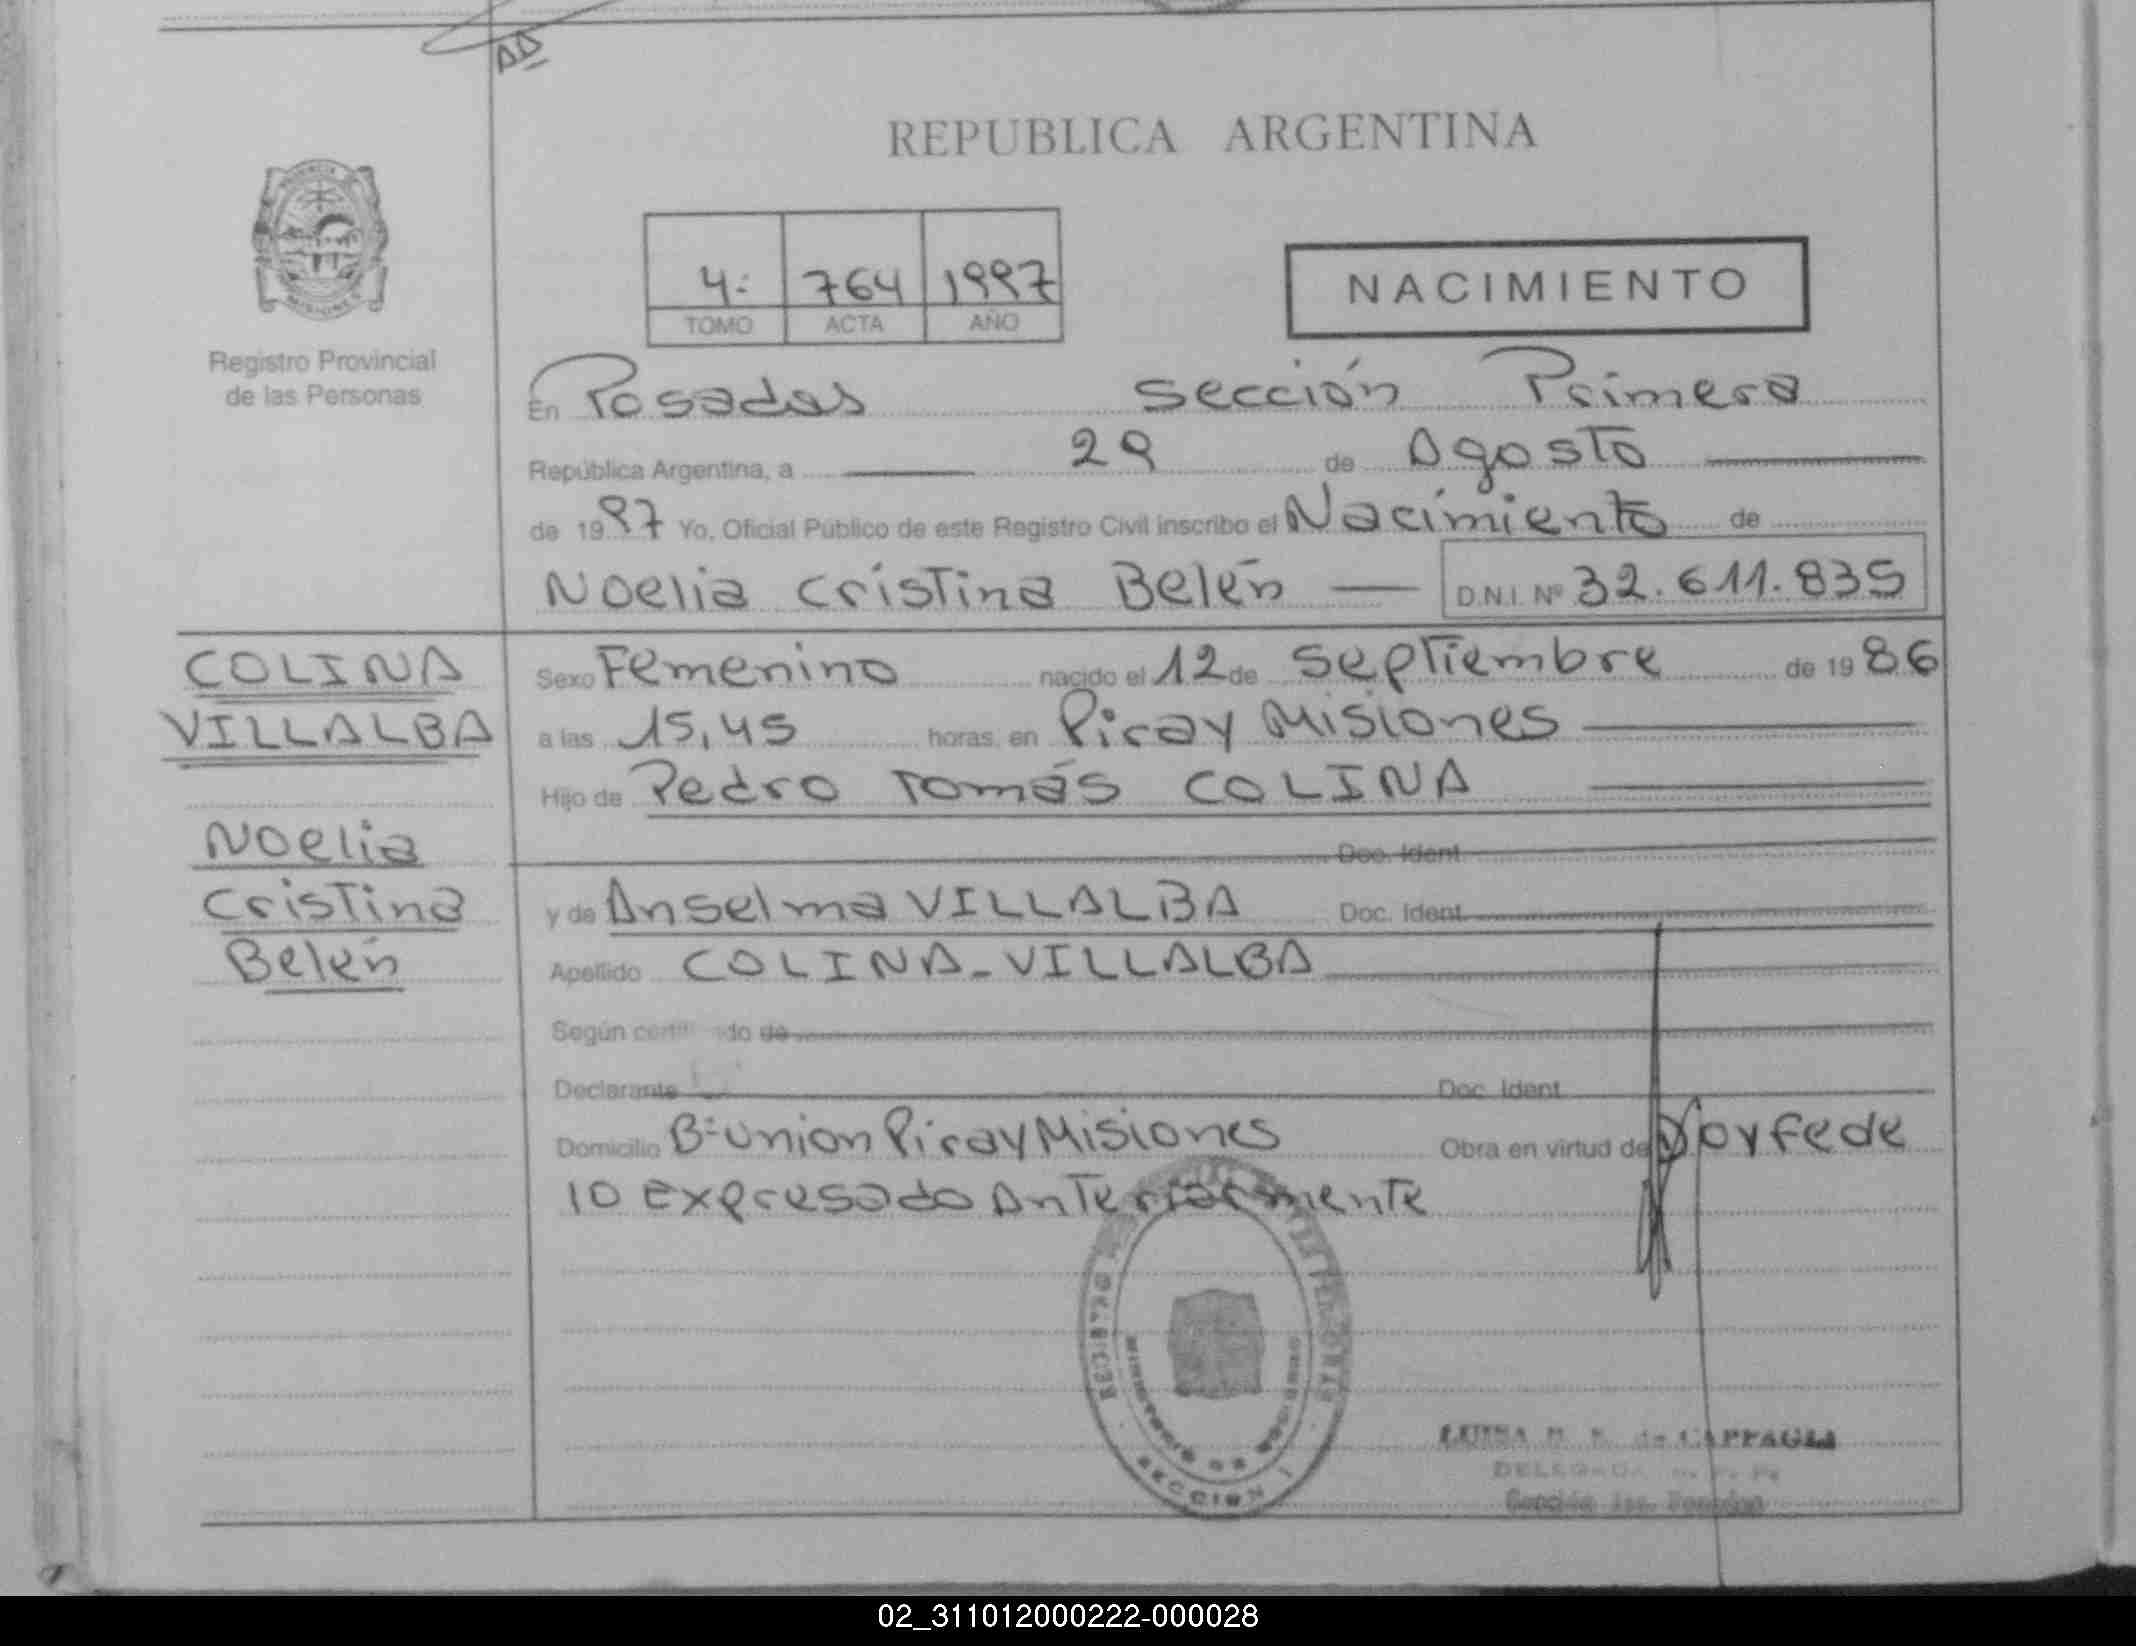 REPUBLICA ARGENTINA
4: 764 1997
TOMO ACTA AÑO
NACIMIENTO
Registro Provincial
de las Personas
En Posadas Sección Primera
República Argentina, a 29 de Agosto
de 1997 Yo, Oficial Público de este Registro Civil inscribo el Nacimiento de
Noelia Cristina Belén D.N.I. Nº 32.611.835
COLINA
VILLALBA
Noelia
Cristina
Belén
Sexo Femenino nacido el 12 de Septiembre de 1986
a las 15,45 horas, en Piray Misiones
Hijo de Pedro Tomás COLINA
Doc. Ident
y de Anselma VILLALBA Doc. Ident
Apellido COLINA-VILLALBA
Según do de
Declarante Doc. Ident
Domicilio B=Union Piray Misiones Obra en virtud de Doy fe de
lo Expresado Anteriormente
SECCION 1
LUISA de CAPPAGLI
DELEGADA
Sección 1ra. Posadas
02_311012000222-000028